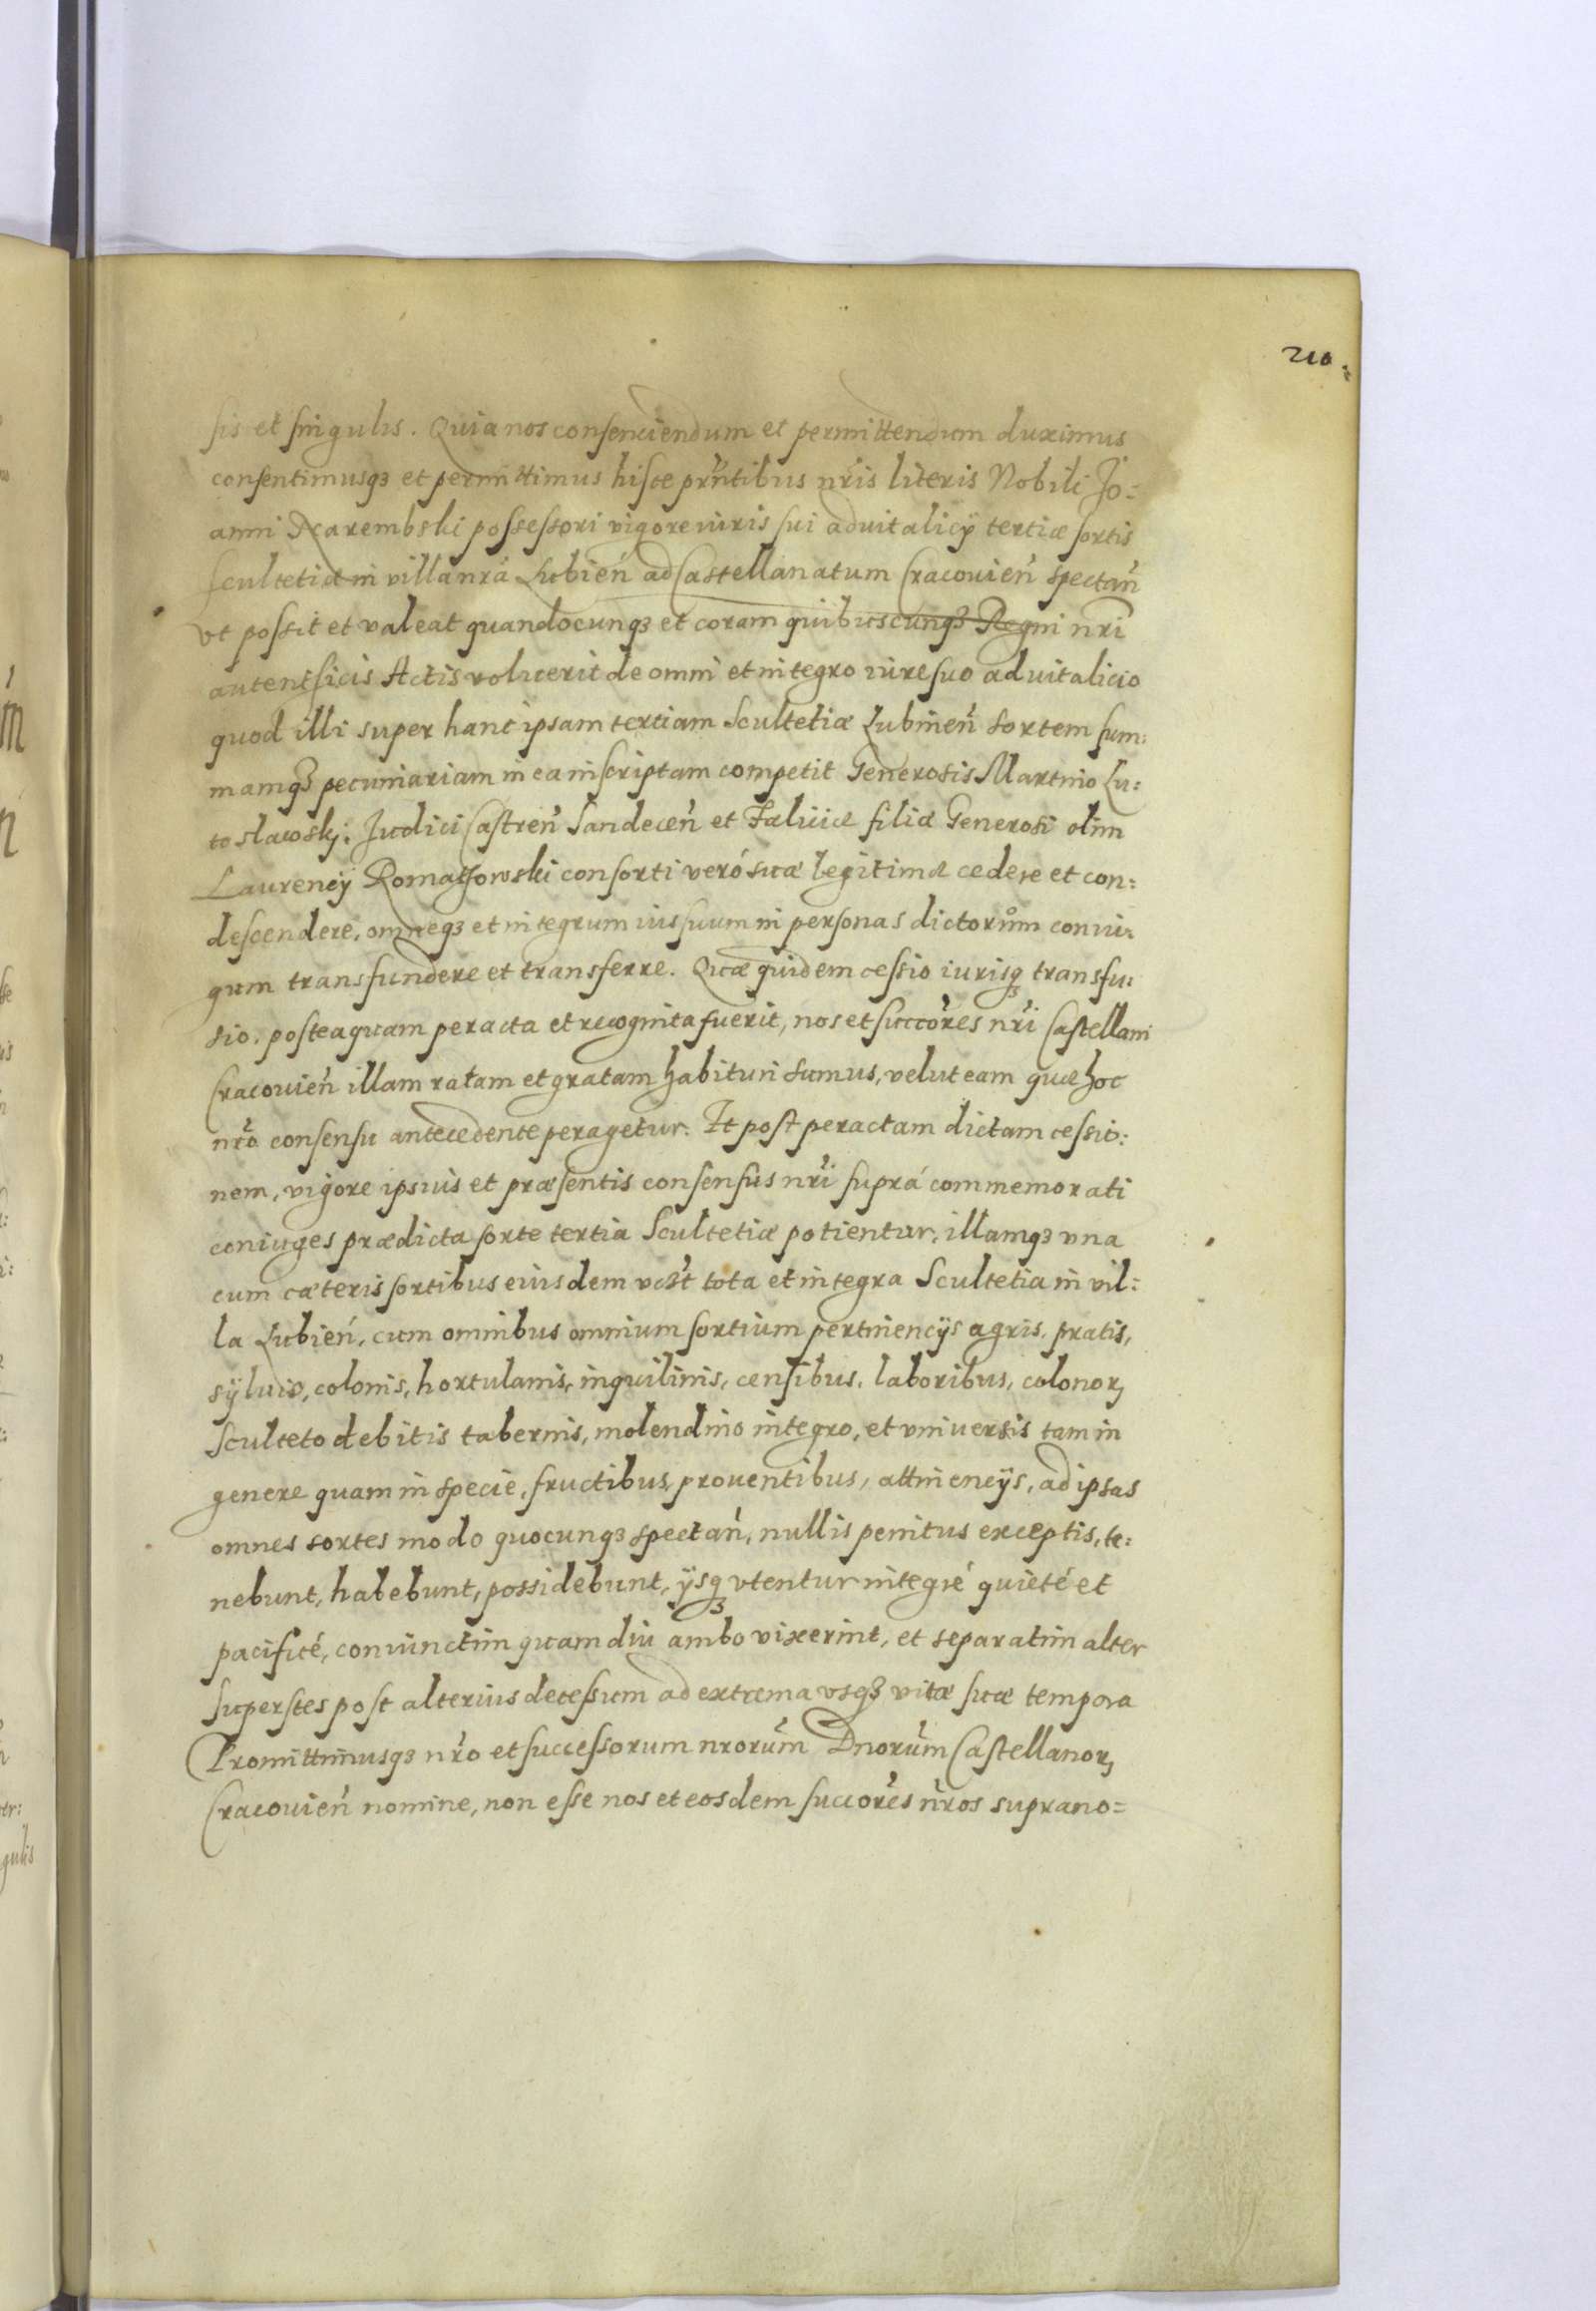 210.
sis et singulis. Quia nos consenciendum et permittendum duximus
consentimusqꝫ et permittimus hisce prñtibus nr̃is literis Nobili Jo:
anni Xarembski possessori vigore iuris sui aduitalicÿ tertiæ sortis
scultetiæ in villa nrã Lubień ad Castellanatum Cracouień spectań
vt possit et valeat quandocunqꝫ et coram quibuscunqꝫ Regni nrĩ
autenthicis Actis voluerit de omni et integro iure suo aduitalicio
quod illi super hanc ipsam tertiam Scultetiæ Lubineń sortem sum:
mamqꝫ pecuniariam in ea inscriptam competit Generosis Martino Lu:
toslawskj. Judici Castreń Sandeceń et filiæ Generosi olim
Laurencÿ Romaszowski consorti veró suæ legitimæ cedere et con:
descendere, omneqꝫ et integrum ius suum in personas dictorům coniu:
gum transfundere et transferre. Quæ quidem cessio iurisqꝫ transfu:
sio. posteaquam peracta et recognita fuerit, nos et succõres nr̃i Castellani
Cracouień illam ratam et gratam habituri sumus, velut eam quæ hoc
nr̃o consensu antecedente peragetur. Et post peractam dictam cessio:
nem, vigore ipsius et præsentis consensus nr̃i suprá commemorati
coniuges prædicta sorte tertia Scultetiæ potientur, illamqꝫ vna
cum cæteris sortibus eiusdem tota et integra Scultetia in vil:
la Lubień, cum omnibus omnium sortium pertinencÿs agris, pratis,
sÿluis, colonis, hortulanis, inquilinis, censibus, laboribus, colonoꝝ
Sculteto debitis tabernis, molendino integro, et vniuersis tam in
genere quam in specie, fructibus, prouentibus, attinencÿs, ad ipsas
omnes sortes modo quocunqꝫ spectań, nullis penitus exceptis, te:
nebunt, habebunt, possidebunt, ÿsqꝫ vtentur integré quieté et
pacificé, coniunctim quamdiu ambo vixerint, et separatim alter
superstes post alterius decessum ad extrema vsqꝫ vitæ suæ tempora
Promittimusqꝫ nr̃o et successorum nrorũm Dnorũm Castellanoꝝ
Cracouień nomine, non esse nos et eosdem succores nr̃os suprano=